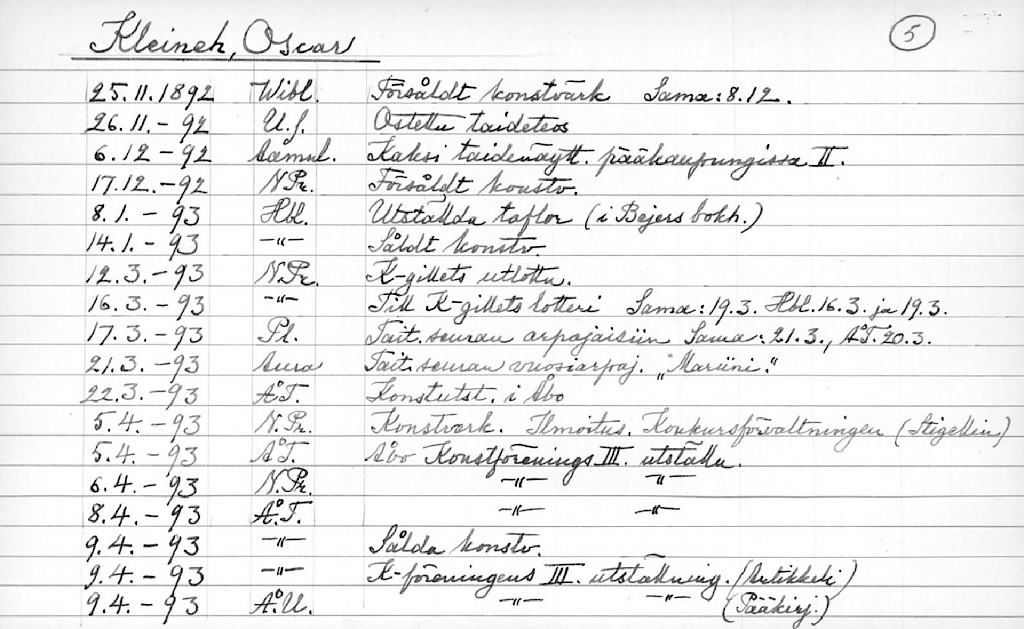 Kleineh, Oscar 5
25.11.1892 Wibl. Försåldt konstvärk Sama: 8.12.
26.11.-92 U.S. Ostettu taideteos
6.12-92 Aamul. Kaksi taidenäytt. pääkaupungissa II.
17.12.-92 N.Pr. Försåldt konstv.
8.1.-93 Hbl. Utställda taflor (i Beijers bokh.)
14.1.-93 -"- Såldt konstv.
12.3.-93 N.Pr. K-gillets utlottn.
16.3.-93 -"- Till K-gillets lotteri Sama: 19.3. Hbl. 16.3. ja 19.3.
17.3.-93 Pl. Tait. seuran arpajaisiin Sama: 21.3., Å.T. 20.3.
21.3.-93 Aura Tait. seuran vuosiarpaj. "Mariini."
22.3.-93 Å.T. Konstutst. i Åbo
5.4.-93 N.Pr. Konstverk. Ilmoitus. Konkursförvaltningen (Stigellin)
5.4.-93 Å.T. Åbo Konstförenings III. utställn.
6.4.-93 N.Pr. -"- -"-
8.4.-93 Å.T. -"- -"-
9.4.-93 -"- Sålda konstv.
9.4.-93 -"- K-föreningens III. utställning. (Artikkeli)
9.4.-93 Å.U. -"- -"- (Pääkirj.)